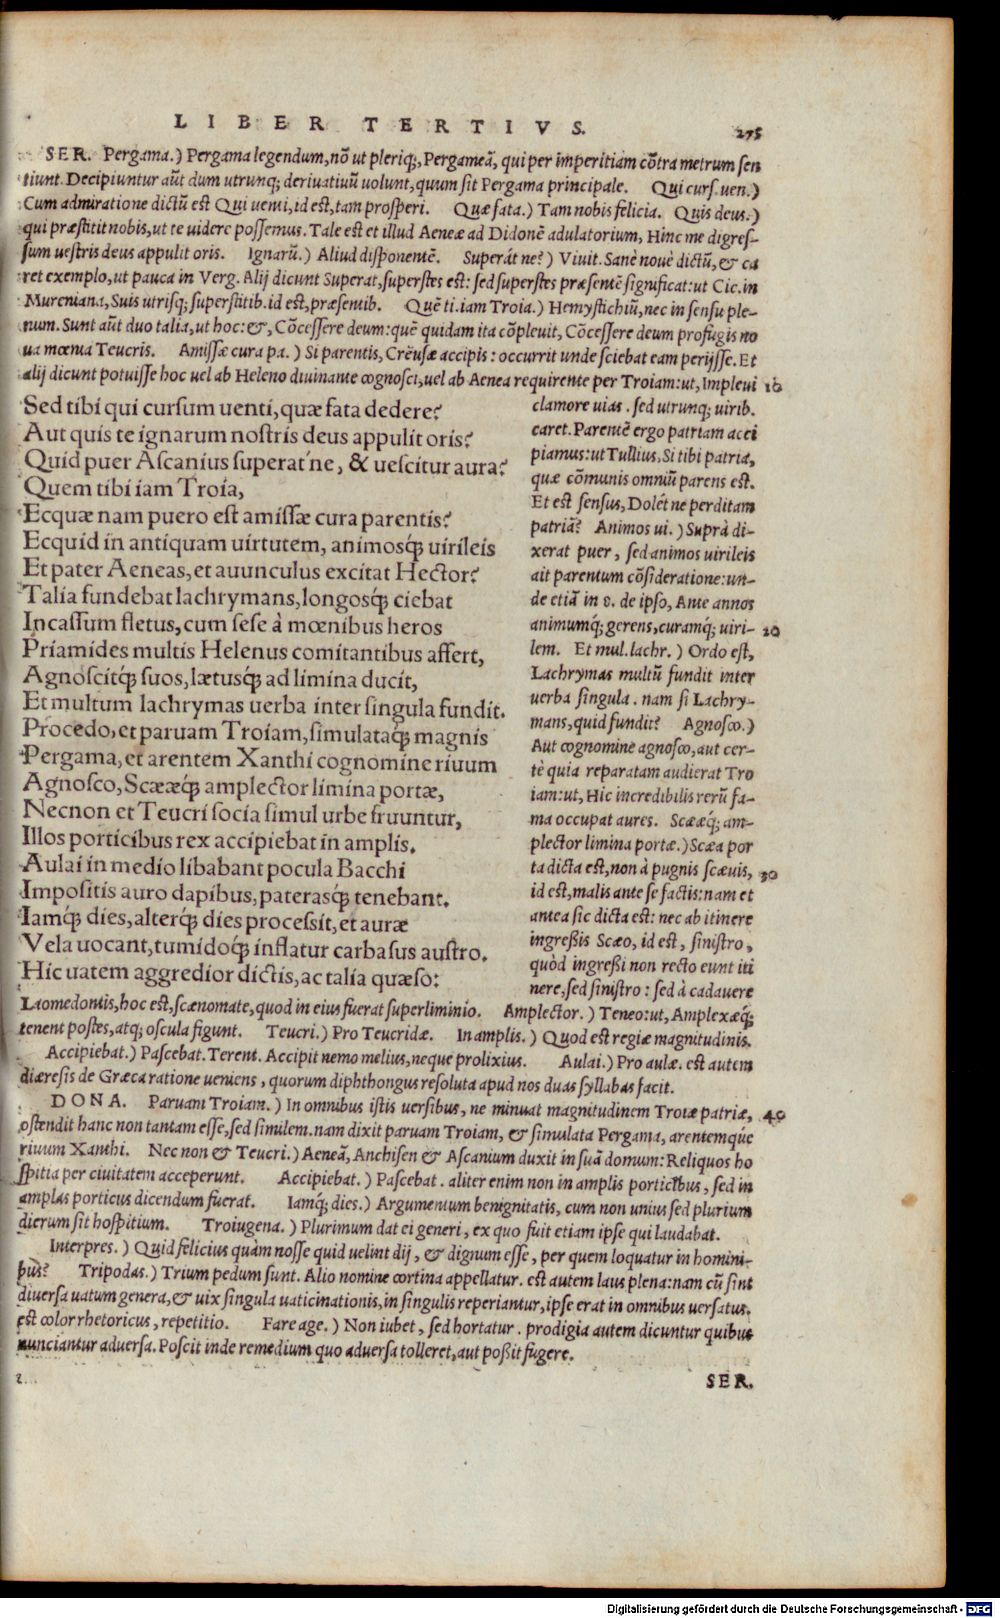 LIBER TERTIVS. 275
SER. Pergama.) Pergama legendum, nõ ut pleriq;, Pergameã, qui per imperitiam cõtra metrum sen
tiunt. Decipiuntur aũt dum utrunq; deriuatiuũ uolunt, quum sit Pergama principale. Qui curs. uen.)
Cum admiratione dictũ est Qui uenti, id est, tam prosperi. Quæ fata.) Tam nobis felicia. Quis deus.)
qui præstitit nobis, ut te uidere possemus. Tale est et illud Aeneæ ad Didonẽ adulatorium, Hinc me digres-
sum uestris deus appulit oris. Ignarũ.) Aliud disponentẽ. Superát ne?) Viuit. Sanè nouè dictũ, & ca
ret exemplo, ut pauca in Verg. Alij dicunt Superat, superstes est: sed superstes præsentẽ significat: ut Cic. in
Mureniana, Suis utrisq; superstitib. id est, præsentib. Quẽ ti. iam Troia.) Hemystichiũ, nec in sensu ple-
num. Sunt aũt duo talia, ut hoc: &, Cõcessere deum: quẽ quidam ita cõpleuit, Cõcessere deum profugis no
ua mœnia Teucris. Amissæ cura pa.) Si parentis, Crëusæ accipis: occurrit unde sciebat eam perijsse. Et
alij dicunt potuisse hoc uel ab Heleno diuinante cognosci, uel ab Aenea requirente per Troiam: ut, Impleui 10
Sed tibi qui cursum uenti, quæ fata dedere?
Aut quis te ignarum nostris deus appulit oris?
Quid puer Ascanius superat'ne, & uescitur aura?
Quem tibi iam Troia,
Ecquæ nam puero est amissæ cura parentis?
Ecquid in antiquam uirtutem, animosq́; uirileis
Et pater Aeneas, et auunculus excitat Hector?
Talia fundebat lachrymans, longosq́; ciebat
Incassum fletus, cum sese à mœnibus heros
Priamides multis Helenus comitantibus affert,
Agnoscitq́; suos, lætusq́; ad limina ducit,
Et multum lachrymas uerba inter singula fundit.
Procedo, et paruam Troiam, simulataq́; magnis
Pergama, et arentem Xanthi cognomine riuum
Agnosco, Scææq́; amplector limina portæ,
Necnon et Teucri socia simul urbe fruuntur,
Illos porticibus rex accipiebat in amplis.
Aulai in medio libabant pocula Bacchi
Impositis auro dapibus, paterasq́; tenebant.
Iamq́; dies, alterq́; dies processit, et auræ
Vela uocant, tumidoq́; inflatur carbasus austro.
Hic uatem aggredior dictis, ac talia quæso:
clamore uias. sed utrunq; uirib.
caret. Parentẽ ergo patriam acci
piamus: ut Tullius, Si tibi patria,
quæ cõmunis omniũ parens est.
Et est sensus, Dolét ne perditam
patriã? Animos ui.) Suprà di-
xerat puer, sed animos uirileis
ait parentum cõsideratione: un-
de etiã in 8. de ipso, Ante annos
animumq́; gerens, curamq́; uiri- 20
lem. Et mul. lachr.) Ordo est,
Lachrymas multũ fundit inter
uerba singula. nam si Lachry-
mans, quid fundit? Agnosco.)
Aut cognomine agnosco, aut cer-
tè quia reparatam audierat Tro
iam: ut, Hic incredibilis rerũ fa-
ma occupat aures. Scææq́; am-
plector limina portæ.) Scæa por
ta dicta est, non à pugnis scæuis, 30
id est, malis ante se factis: nam et
antea sic dicta est: nec ab itinere
ingreßis Scæo, id est, sinistro,
quòd ingreßi non recto eunt iti
nere, sed sinistro: sed à cadauere
Laomedontis, hoc est, scænomate, quod in eius fuerat superliminio. Amplector.) Teneo: ut, Amplexæq́;
tenent postes, atq; oscula figunt. Teucri.) Pro Teucridæ. In amplis.) Quod est regiæ magnitudinis.
Accipiebat.) Pascebat. Terent. Accipit nemo melius, neque prolixius. Aulai.) Pro aulæ. est autem
diæresis de Græca ratione ueniens, quorum diphthongus resoluta apud nos duas syllabas facit.
DONA. Paruam Troiam.) In omnibus istis uersibus, ne minuat magnitudinem Troiæ patriæ, 40
ostendit hanc non tantam esse, sed similem. nam dixit paruam Troiam, & simulata Pergama, arentemque
riuum Xanthi. Nec non & Teucri.) Aeneã, Anchisen & Ascanium duxit in suã domum: Reliquos ho
spitia per ciuitatem acceperunt. Accipiebat.) Pascebat. aliter enim non in amplis porticibus, sed in
amplas porticus dicendum fuerat. Iamq́; dies.) Argumentum benignitatis, cum non unius sed plurium
dierum sit hospitium. Troiugena.) Plurimum dat ei generi, ex quo fuit etiam ipse qui laudabat.
Interpres.) Quid felicius quàm nosse quid uelint dij, & dignum esse, per quem loquatur in homini-
bus? Tripodas.) Trium pedum sunt. Alio nomine cortina appellatur. est autem laus plena: nam cũ sint
diuersa uatum genera, & uix singula uaticinationis, in singulis reperiantur, ipse erat in omnibus uersatus.
est color rhetoricus, repetitio. Fare age.) Non iubet, sed hortatur. prodigia autem dicuntur quibus
nunciantur aduersa. Poscit inde remedium quo aduersa tolleret, aut poßit fugere.
SER.
Digitalisierung gefördert durch die Deutsche Forschungsgemeinschaft - DFG